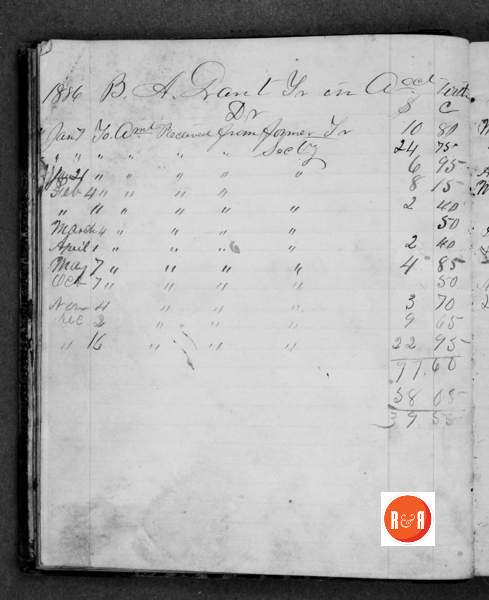 1886 B. A. Grant Tr in Acct with
Dr $ C
Jan 7 To Amt Received from former Tr 10 80
" " " " " " Secty 24 75
" 21 " " " " 6 95
Feb 4 " " " " 8 15
" " " " " " 2 40
March 4 " " " " 50
April 1 " " " " 2 40
May 7 " " " " 4 85
Oct 7 " " " " 50
Nov 4 " " " 3 70
Dec 2 " " " 9 65
" 16 " " " 22 95
97.60
58 05
39 55
R&R